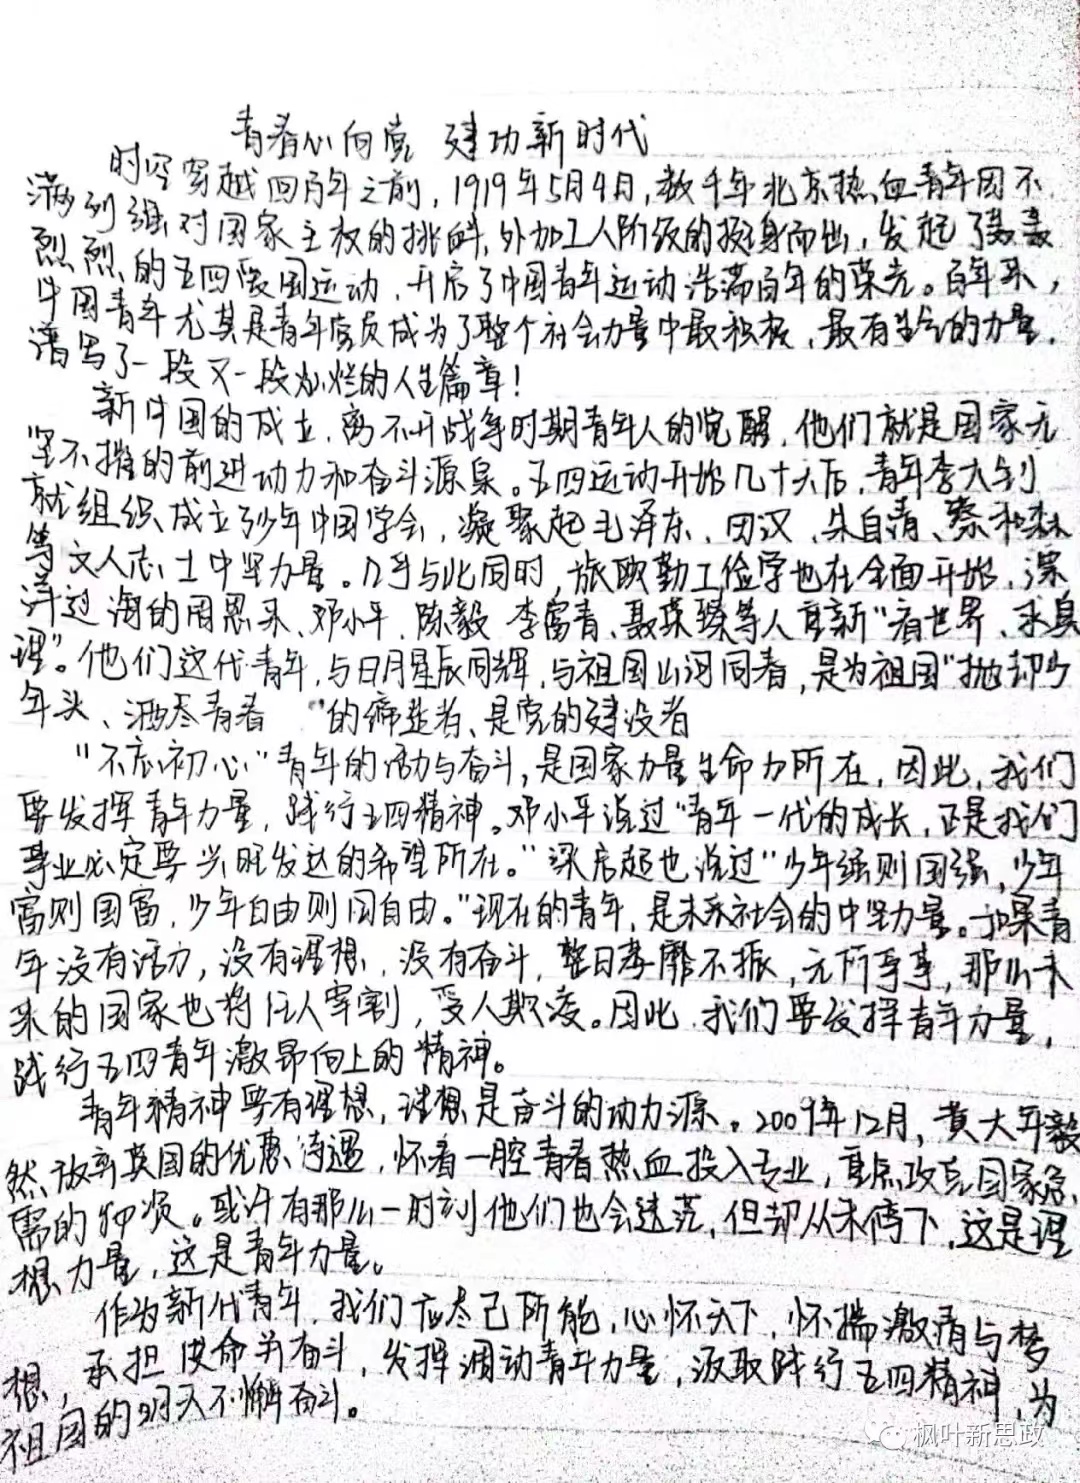 青春心向党 建功新时代
时空穿越回百年之前，1919年5月4日，数千年北京热血青年因不
满列强对国家主权的挑衅，外加工人阶级的挺身而出，发起了轰轰
烈烈的五四爱国运动，开启了中国青年运动浩荡百年的荣光。百年来，
中国青年尤其是青年党员成为了整个社会力量中最积极、最有生气的力量，
谱写了一段又一段灿烂的人生篇章！
新中国的成立，离不开战争时期青年人的觉醒，他们就是国家无
坚不摧的前进动力和奋斗源泉。五四运动开始几十天后，青年李大钊
就组织成立了少年中国学会，凝聚起毛泽东、田汉、朱自清、蔡和森
等文人志士中坚力量。几乎与此同时，旅欧勤工俭学也在全面开始，漂
洋过海的周恩来、邓小平、陈毅、李富春、聂荣臻等人重新“看世界、求真
理”。他们这代青年，与日月星辰同辉，与祖国山河同春，是为祖国“抛却少
年头、洒尽青春 ”的缔造者、是党的建设者
“不忘初心”青年的活力与奋斗，是国家力量生命力所在，因此，我们
要发挥青年力量，践行五四精神。邓小平说过“青年一代的成长，正是我们
事业必定要兴旺发达的希望所在。”梁启超也说过“少年强则国强，少年
富则国富，少年自由则国自由。”现在的青年，是未来社会的中坚力量。如果青
年没有活力，没有理想，没有奋斗，整日萎靡不振，无所事事，那么未
来的国家也将任人宰割，受人欺凌。因此，我们要发挥青年力量，
践行五四青年激昂向上的精神。
青年精神要有理想，理想是奋斗的动力源。2009年12月，黄大年毅
然放弃英国的优惠待遇，怀着一腔青春热血投入专业，重点攻克国家急
需的项。或许有那么一时刻他们也会迷茫，但却从未停下，这是理
想力量，这是青年力量。
作为新代青年，我们应尽己所能，心怀天下，怀揣激情与梦
想，承担使命并奋斗，发挥调动青年力量，汲取践行五四精神，为
祖国的明天不懈奋斗。
枫叶新思政